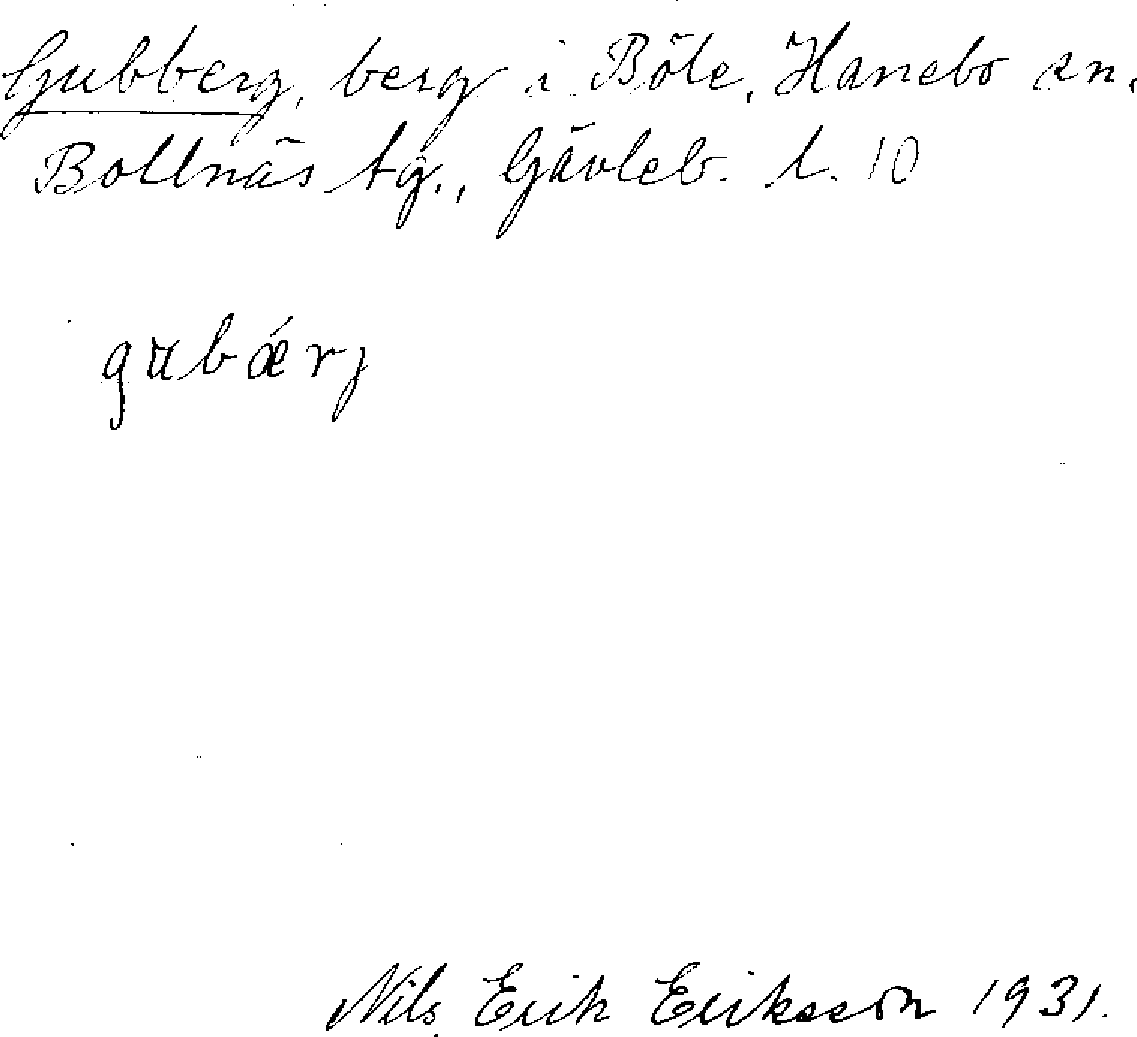 Gubberg, berg i Böle, Hanebo sn,
Bollnäs tg., Gävleb. l. 10
gubǽrj
Nils Erik Eriksson 1931.